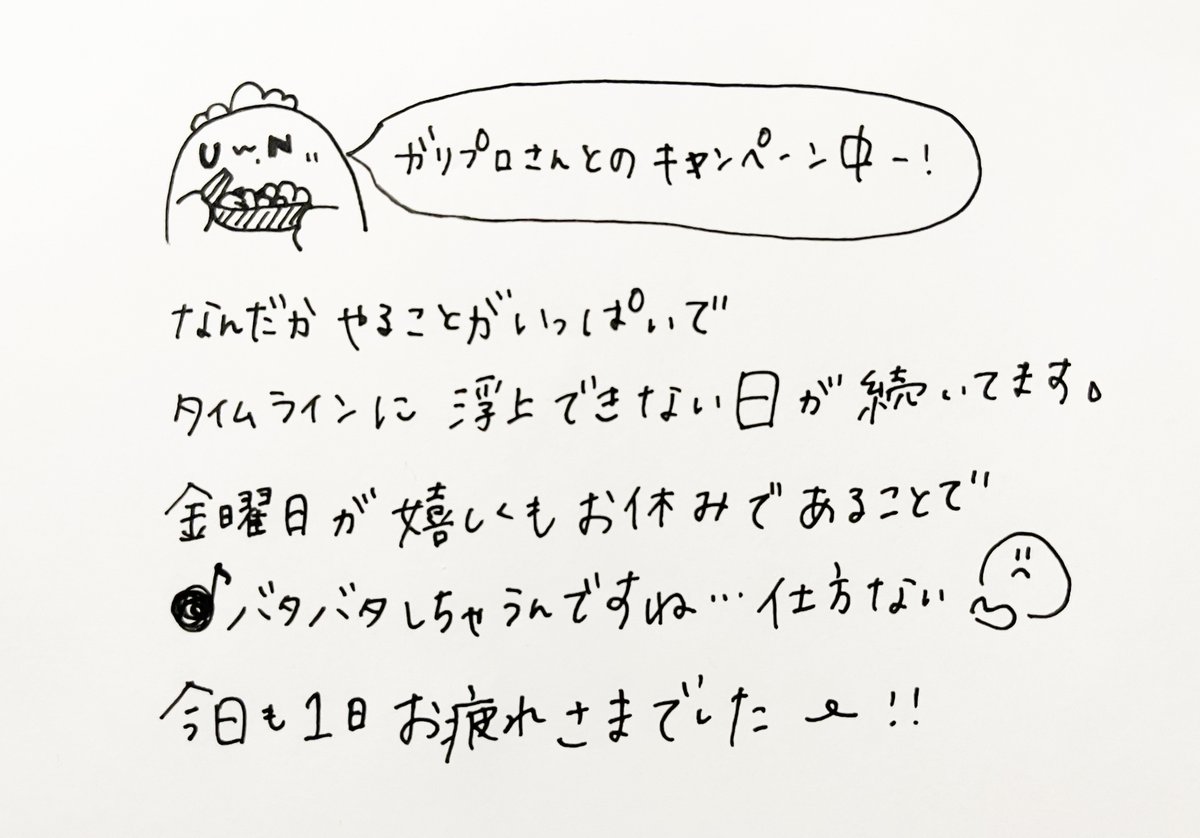 ガリプロさんとのキャンペーン中ー!
なんだか やることがいっぱいで
タイムラインに 浮上できない日が続いてます。
金曜日が嬉しくもお休みであることで
バタバタしちゃうんですね…仕方ない
今日も1日 お疲れさまでした〜!!